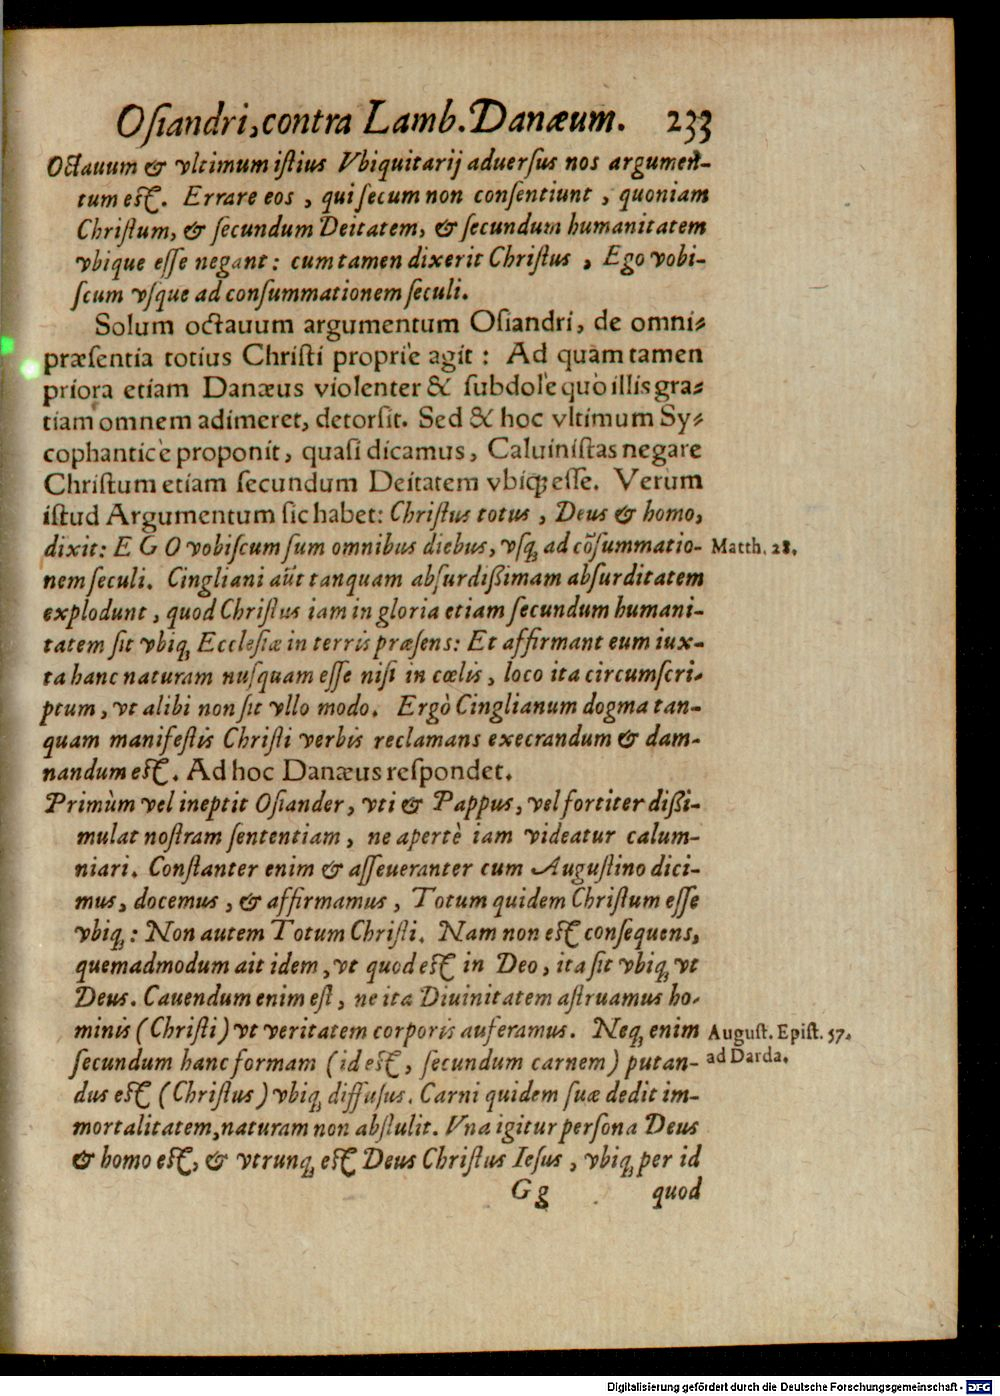 Osiandri, contra Lamb. Danæum. 233
Octauum & vltimum istius Vbiquitarij aduersus nos argumen-
tum est. Errare eos, qui secum non consentiunt, quoniam
Christum, & secundum Deitatem, & secundum humanitatem
vbique esse negant: cum tamen dixerit Christus, Ego vobi-
scum vsque ad consummationem seculi.
Solum octauum argumentum Osiandri, de omni-
præsentia totius Christi propriè agit: Ad quam tamen
priora etiam Danæus violenter & subdolè quò illis gra-
tiam omnem adimeret, detorsit. Sed & hoc vltimum Sy-
cophanticè proponit, quasi dicamus, Caluinistas negare
Christum etiam secundum Deitatem vbiq; esse. Verùm
istud Argumentum sic habet: Christus totus, Deus & homo,
dixit: EGO vobiscum sum omnibus diebus, vsq; ad cõsummatio- Matth. 28.
nem seculi. Cingliani aũt tanquam absurdißimam absurditatem
explodunt, quod Christus iam in gloria etiam secundum humani-
tatem sit vbiq; Ecclesiæ in terris præsens: Et affirmant eum iux-
ta hanc naturam nusquam esse nisi in cœlis, loco ita circumscri-
ptum, vt alibi non sit vllo modo. Ergò Cinglianum dogma tan-
quam manifestis Christi verbis reclamans execrandum & dam-
nandum est. Ad hoc Danæus respondet.
Primùm vel ineptit Osiander, vti & Pappus, vel fortiter dißi-
mulat nostram sententiam, ne apertè iam videatur calum-
niari. Constanter enim & asseueranter cum Augustino dici-
mus, docemus, & affirmamus, Totum quidem Christum esse
vbiq;: Non autem Totum Christi. Nam non est consequens,
quemadmodum ait idem, vt quod est in Deo, ita sit vbiq; vt
Deus. Cauendum enim est, ne ita Diuinitatem astruamus ho-
minis (Christi) vt veritatem corporis auferamus. Neq; enim August. Epist. 57.
secundum hanc formam (id est, secundum carnem) putan- ad Darda.
dus est (Christus) vbiq; diffusus. Carni quidem suæ dedit im-
mortalitatem, naturam non abstulit. Vna igitur persona Deus
& homo est, & vtrunq; est Deus Christus Iesus, vbiq; per id
Gg quod
Digitalisierung gefördert durch die Deutsche Forschungsgemeinschaft - DFG